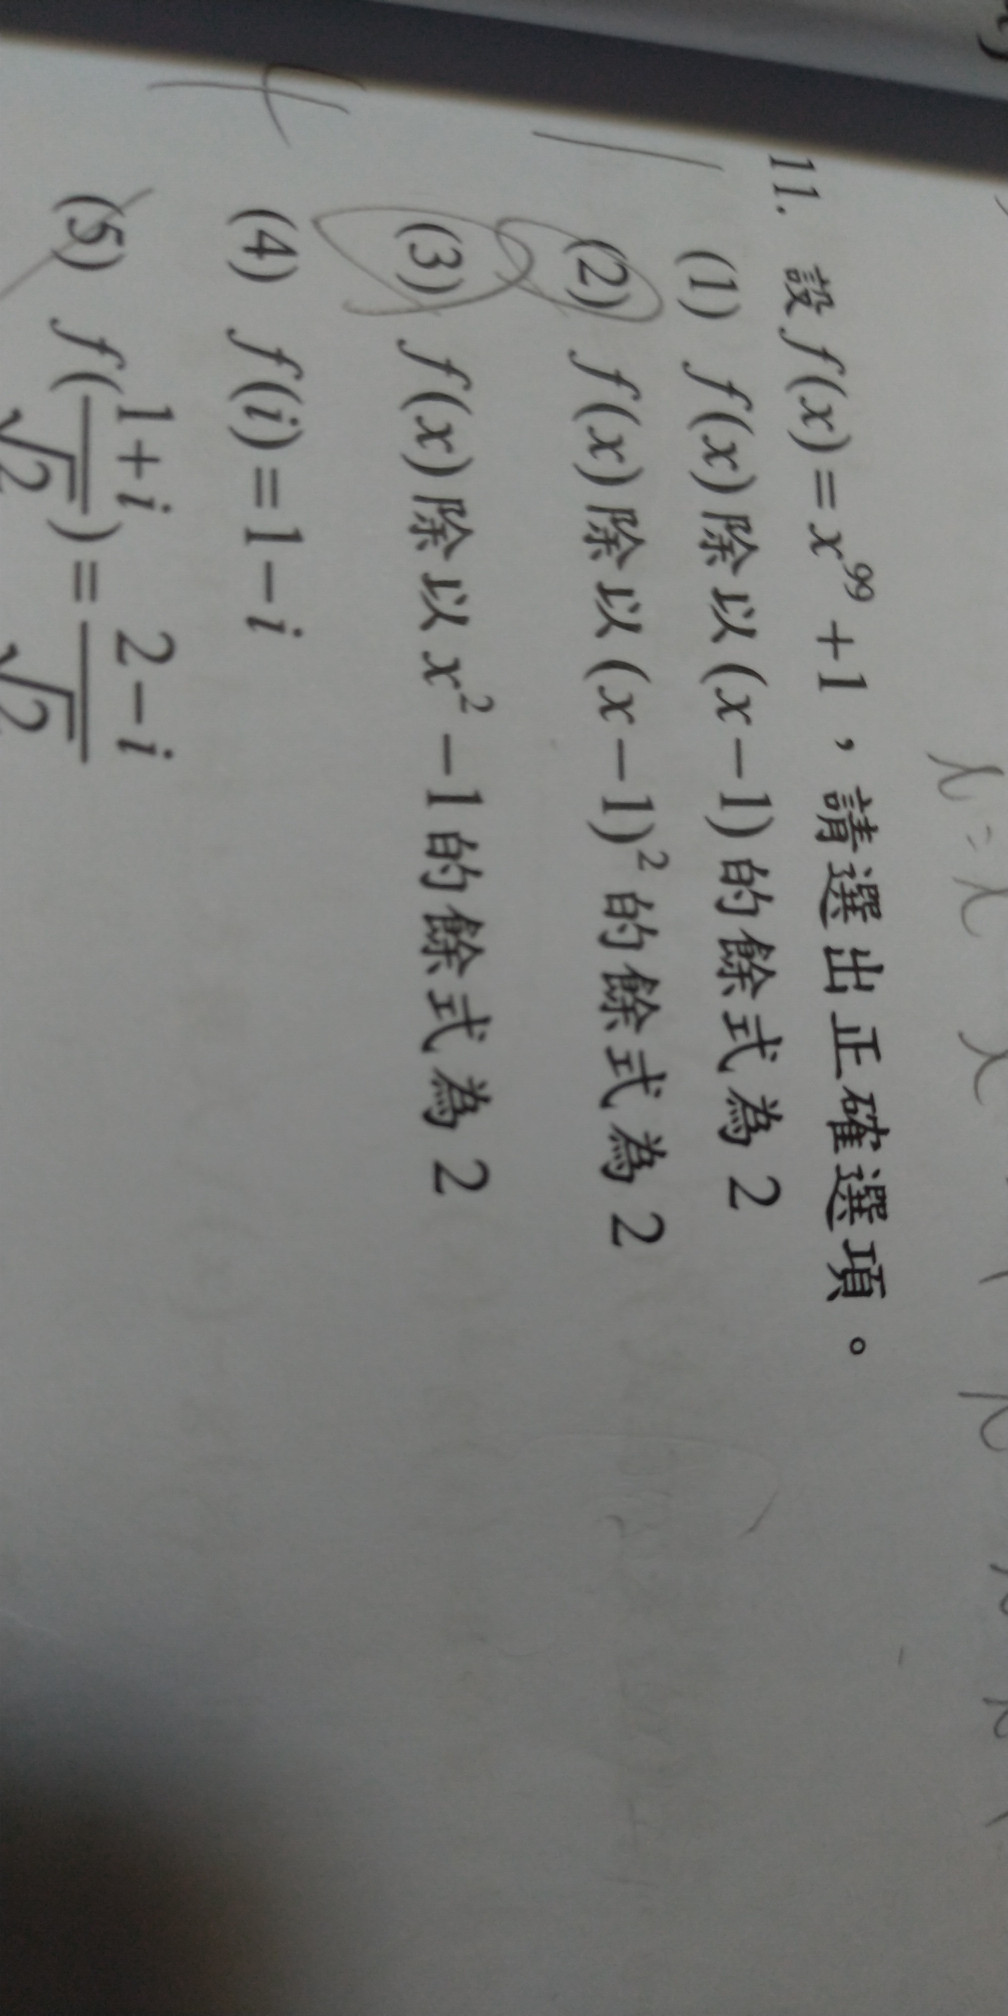 11. 設 f(x)=x⁹⁹+1，請選出正確選項。
(1) f(x)除以(x−1)的餘式為2
(2) f(x)除以(x−1)²的餘式為2
(3) f(x)除以x²−1的餘式為2
(4) f(i)=1−i
(5) f((1+i)/√2)=(2−i)/√2